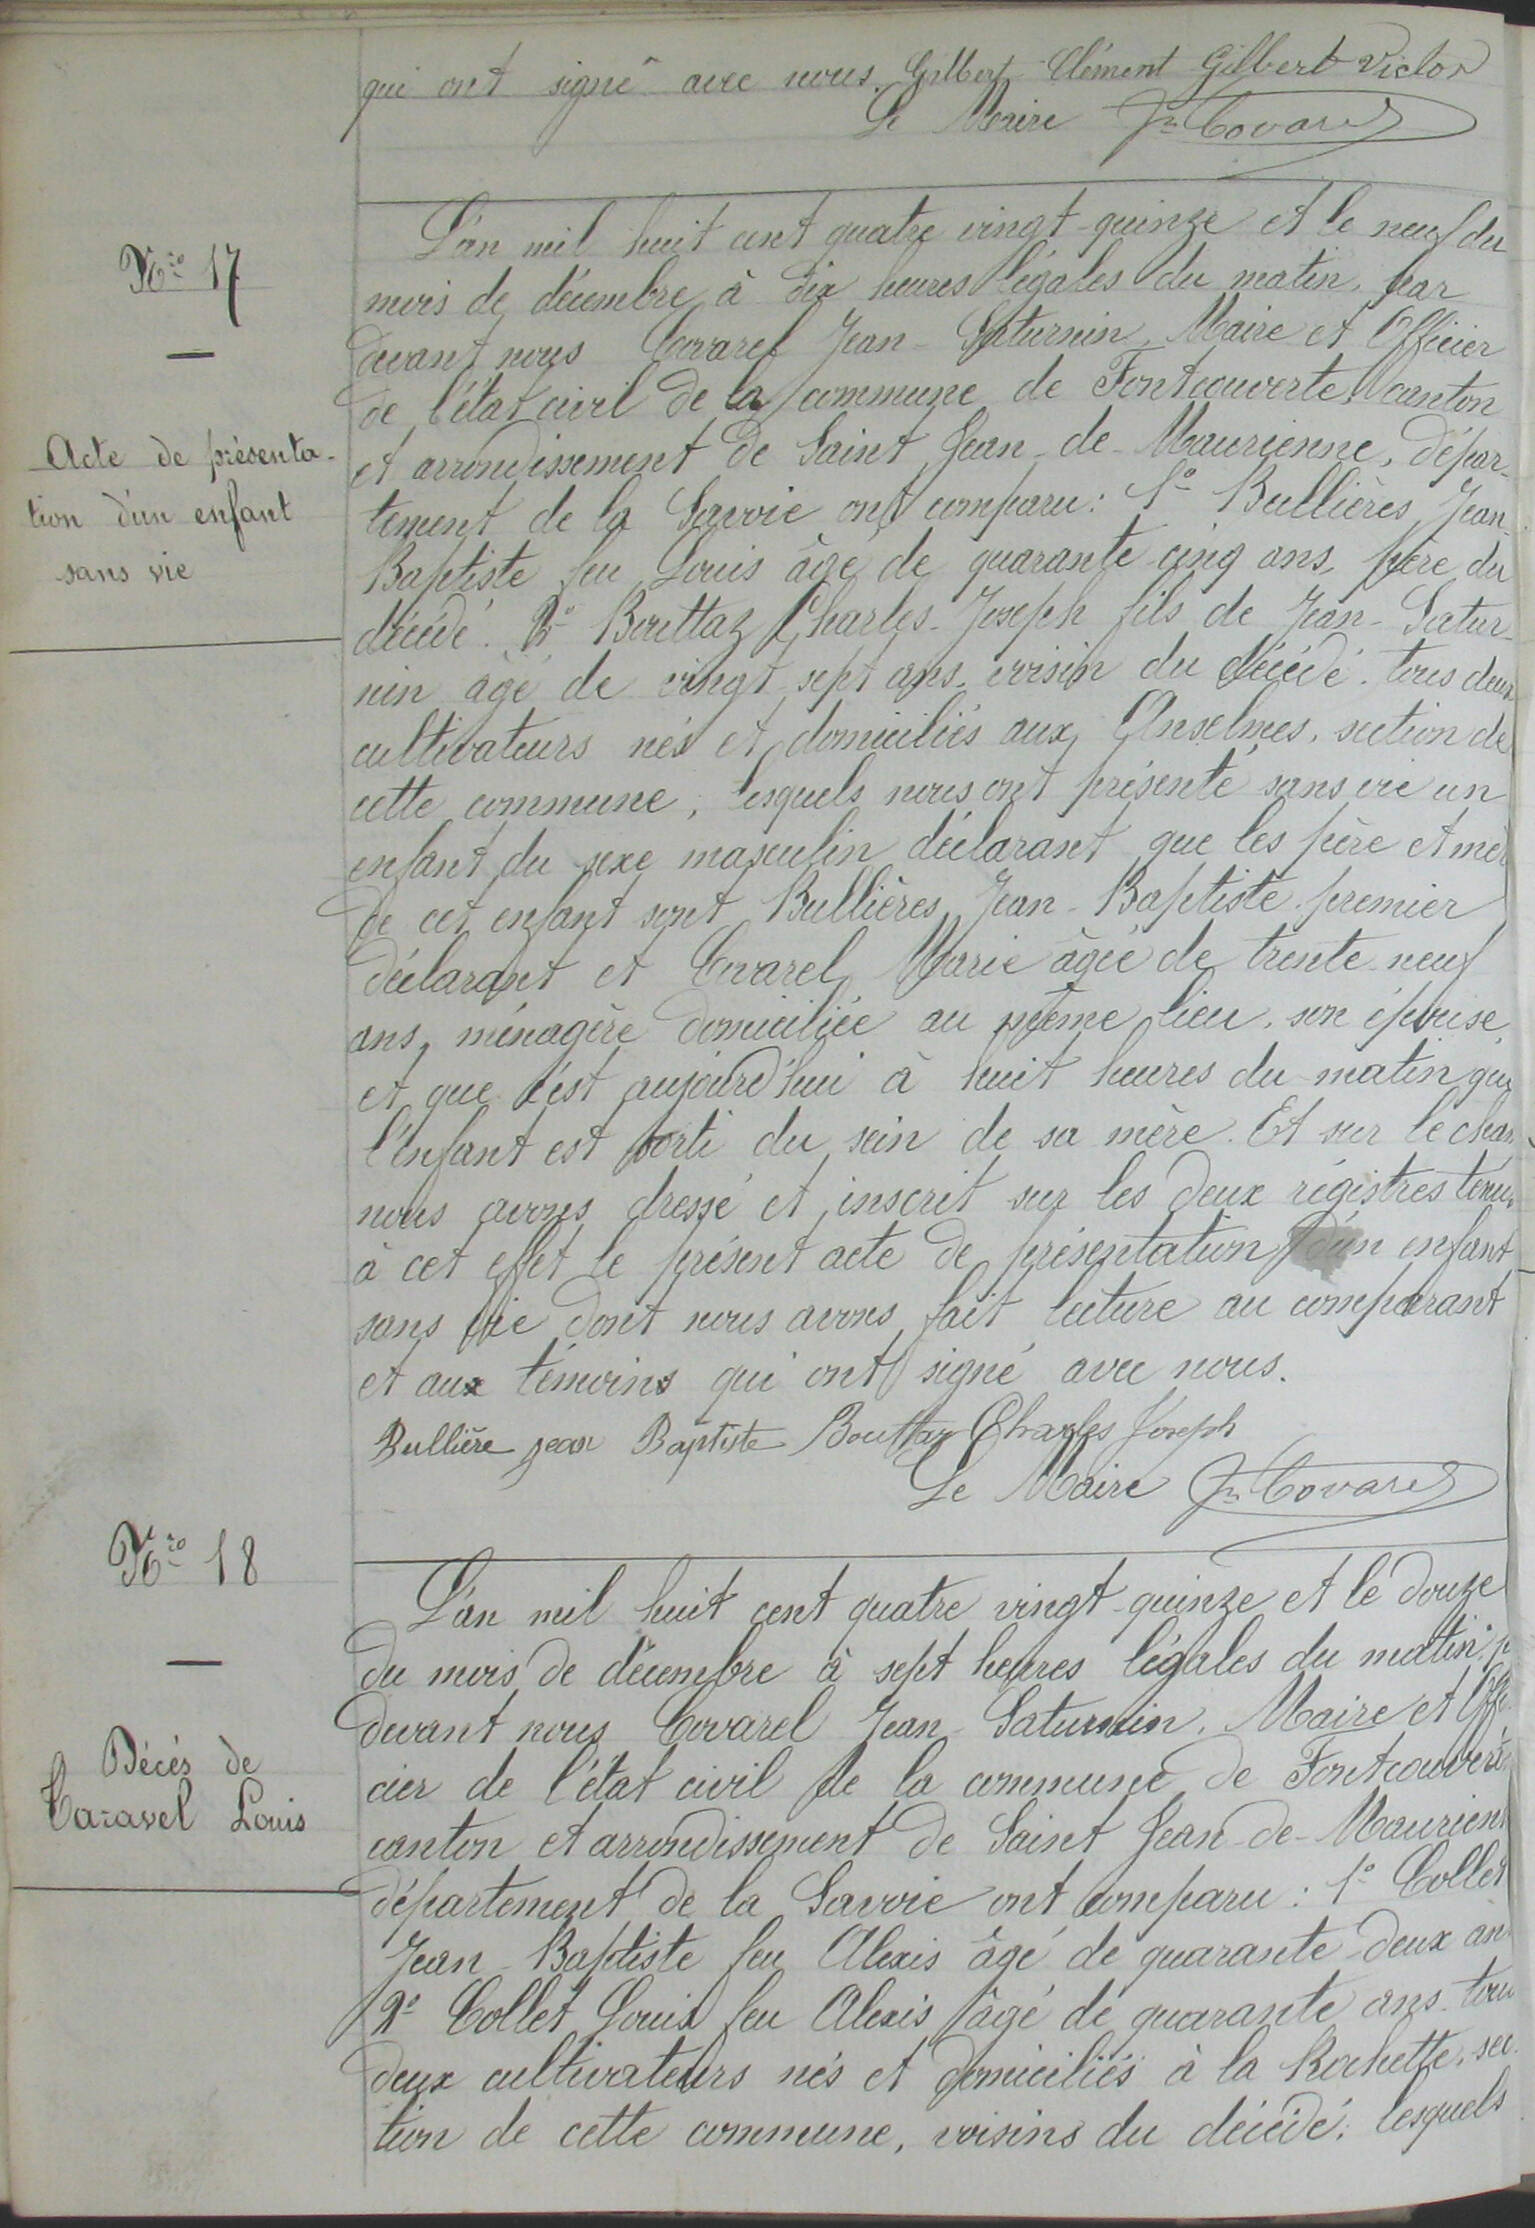 qui ont signé avec nous. Gilbert Clément Gilbert Victor
Le Maire Jn Covarel
Nro 17
Acte de présenta-
tion d'un enfant
sans vie
L'an mil huit cent quatre vingt-quinze et le neuf du
mois de décembre à dix heures légales du matin, par
devant nous Covarel Jean-Saturnin, Maire et Officier
de l'état civil de la commune de Fontcouverte canton
et arrondissement de Saint Jean-de-Maurienne, dépar-
tement de la Savoie ont comparu: 1º Bullières Jean
Baptiste feu Louis âgé de quarante cinq ans, père du
décédé. 2º Bouttaz Charles-Joseph fils de Jean-Satur-
nin âgé de vingt sept ans, voisin du décédé. tous deux
cultivateurs nés et domiciliés aux Anselmes, section de
cette commune; lesquels nous ont présenté sans vie un
enfant du sexe masculin déclarant que les père et mère
de cet enfant sont Bullières Jean-Baptiste premier
déclarant et Covarel Marie âgée de trente-neuf
ans, ménagère domiciliée au même lieu, son épouse,
et que c'est aujourd'hui à huit heures du matin que
l'enfant est sorti du sein de sa mère. Et sur le cham
nous avons dressé et inscrit sur les deux régistres tenus
à cet effet le présent acte de présentation d'un enfant
sans vie dont nous avons fait lecture au comparant
et aux témoins qui ont signé avec nous.
Bullière jean Baptiste Bouttaz Charles Joseph
Le Maire Jn Covarel
Nro 18
Décés de
Caravel Louis
L'an mil huit cent quatre vingt-quinze et le douze
du mois de décembre à sept heures légales du matin, p
devant nous Covarel Jean-Saturnin, Maire et Offi
cier de l'état civil de la commune de Fontcouverte
canton et arrondissement de Saint Jean-de-Maurien
département de la Savoie ont comparu: 1º Collet
Jean-Baptiste feu Alexis âgé de quarante-deux an
2º Collet Louis feu Alexis âgé de quarante ans. tou
deux cultivateurs nés et domiciliés à la Rochette, sec-
tion de cette commune, voisins du décédé; lesquels